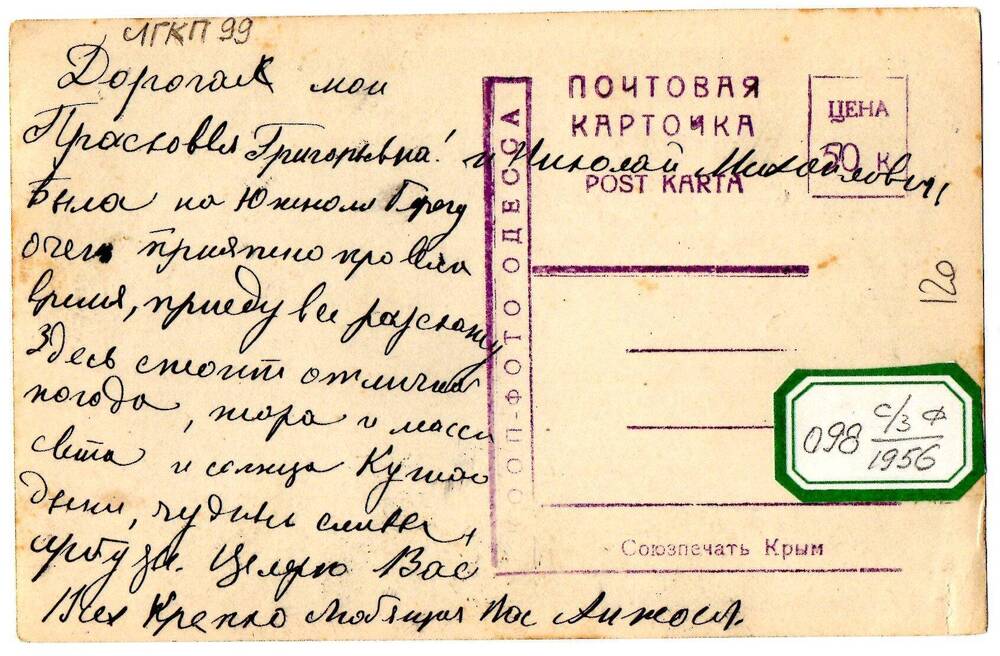 ЛГКП 99
Дорогая мои
Прасковья Григорьевна! и Николай Михайлович
Была на Южном Берегу
очень приятно провела
время, приеду все раскажу
Здесь стоит отличная
погода, жара и масса
света и солнца Кушаю
дыни, чудные сливы,
арбузы. Целую Вас
Всех Крепко Любящая Вас
ПОЧТОВАЯ
КАРТОЧКА
POST KARTA
ЦЕНА
50 К
КООП-ФОТО ОДЕССА
120
098 с/з ф
1956
Союзпечать Крым